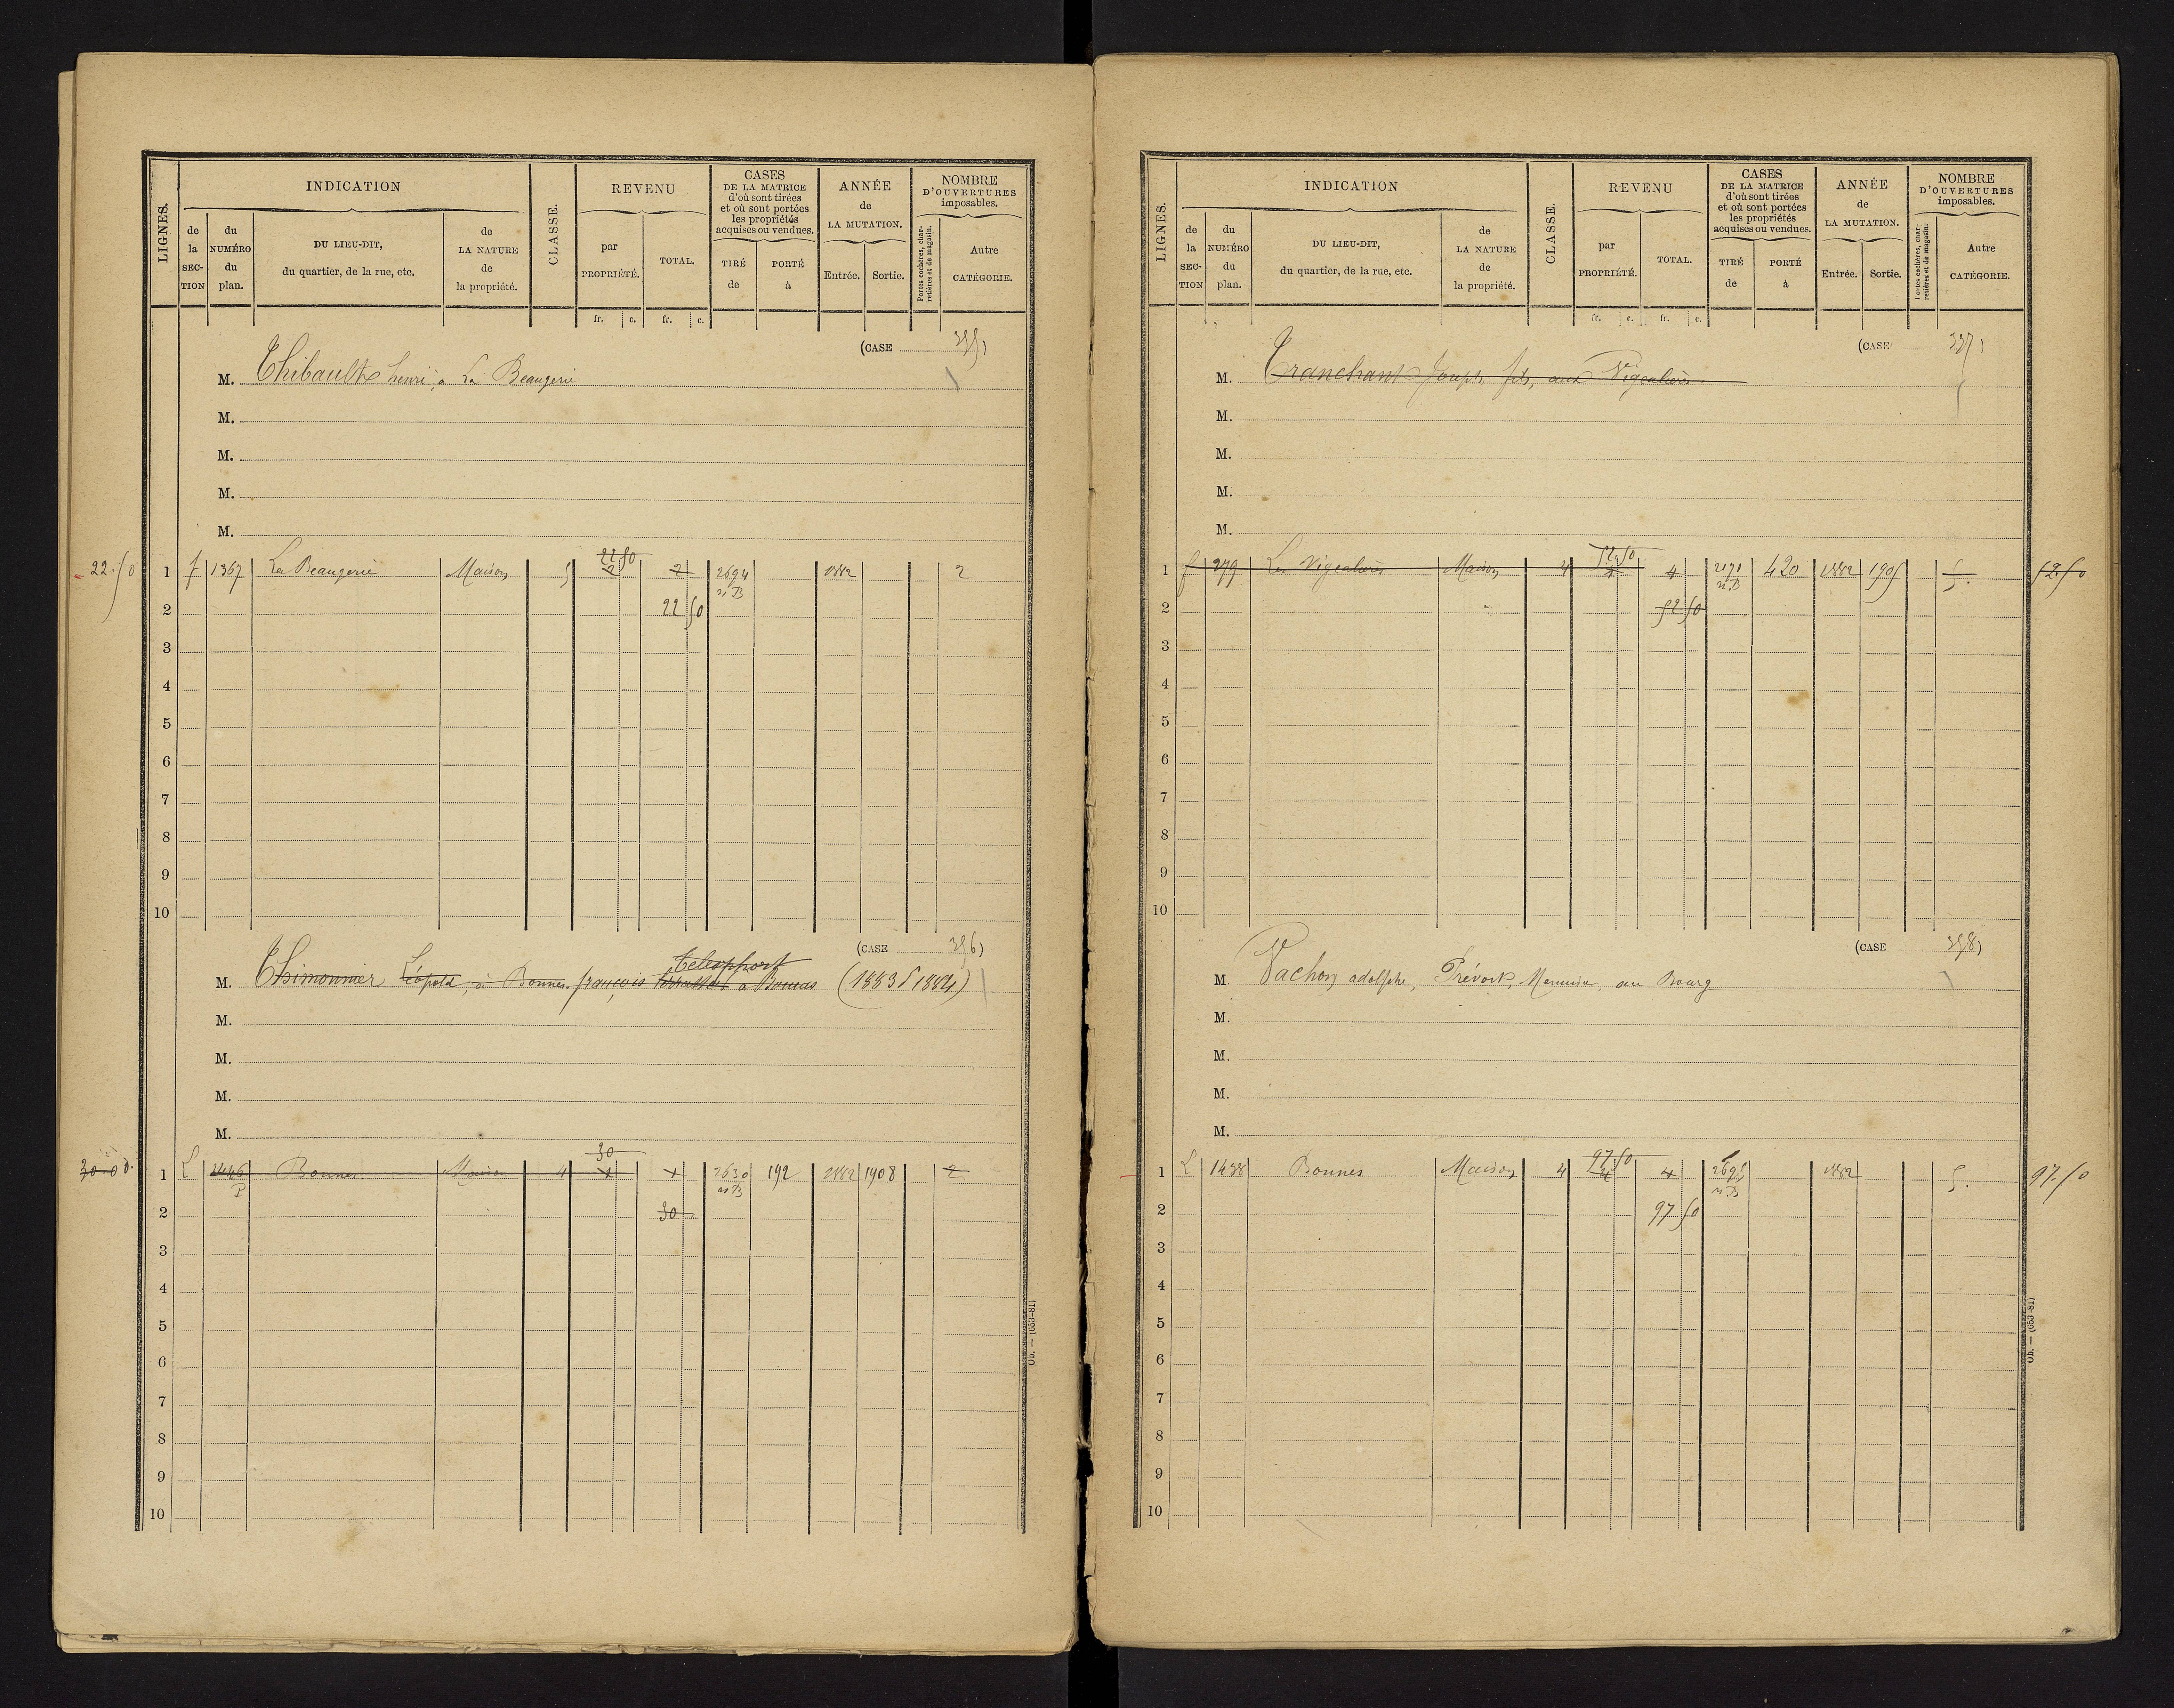 LIGNES.
INDICATION
de la SECTION
du NUMÉRO du plan.
DU LIEU-DIT, du quartier, de la rue, etc.
de LA NATURE de la propriété.
CLASSE.
REVENU
par PROPRIÉTÉ.
TOTAL.
fr. c. fr. c.
CASES DE LA MATRICE d'où sont tirées et où sont portées les propriétés acquises ou vendues.
TIRÉ de
PORTÉ à
ANNÉE de LA MUTATION.
Entrée. Sortie.
NOMBRE D'OUVERTURES imposables.
Portes cochères, charretières et de magasin.
Autre CATÉGORIE.
(CASE 355)
M. Thibault henri, à La Beaugerie
M.
M.
M.
M.
22 50
22.50 1 f 1367 La Beaugerie Maison 5 2 2 2694 1882 2
n. B
2 22 50
3
4
5
6
7
8
9
10
(CASE 356)
M. Thimonnier Léopold, à Bonnes françois à Bonnes (1883 1884)
M.
M.
M.
M.
30
30.00 1 L 1446 Bonnes Maison 4 2630 192 1882 1908 2
P n B
2 30
3
4
5
6
7
8
9
10
Ob. — (683-81)
LIGNES.
INDICATION
de la SECTION
du NUMÉRO du plan.
DU LIEU-DIT, du quartier, de la rue, etc.
de LA NATURE de la propriété.
CLASSE.
REVENU
par PROPRIÉTÉ.
TOTAL.
fr. c. fr. c.
CASES DE LA MATRICE d'où sont tirées et où sont portées les propriétés acquises ou vendues.
TIRÉ de
PORTÉ à
ANNÉE de LA MUTATION.
Entrée. Sortie.
NOMBRE D'OUVERTURES imposables.
Portes cochères, charretières et de magasin.
Autre CATÉGORIE.
(CASE 357)
M. Tranchant Joseph fils, aux
M.
M.
M.
M.
52 50
1 f 279 Les Maison 4 4 4 420 1882 1905 5. 52.50
n. B
2 52 50
3
4
5
6
7
8
9
10
(CASE 358)
M. Vachon adolphe, Prévost, Menuisier, au Bourg
M.
M.
M.
M.
97 50
1 L 1438 Bonnes Maison 4 4 4 1882 5. 97.50
n. B
2 97 50
3
4
5
6
7
8
9
10
Ob. — (683-81)